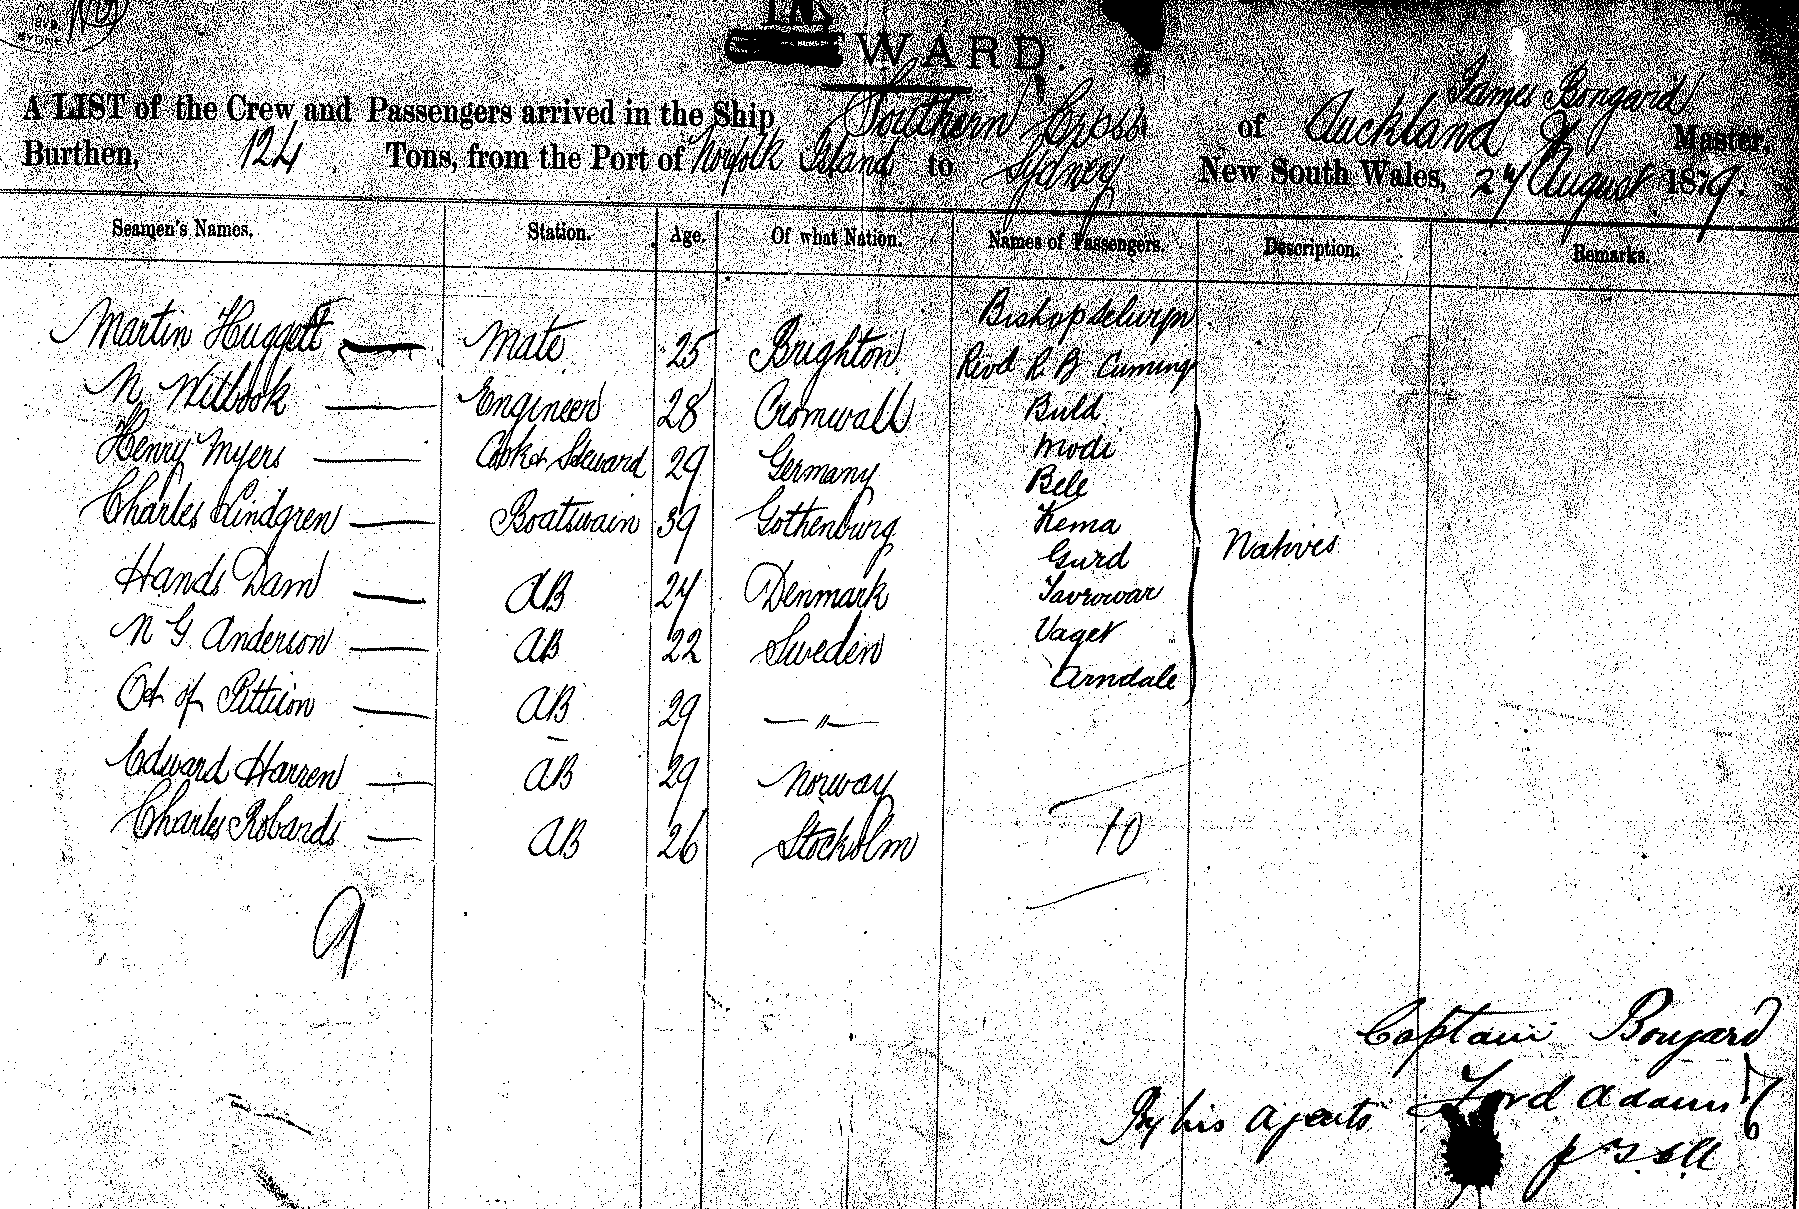 WARD.
James Bongard
A LIST of the Crew and Passengers arrived in the Ship Southern Cross of Auckland Master,
Burthen, 124 Tons, from the Port of Norfolk Island to Sydney New South Wales, 27 August 1879.
Seamen's Names. Station. Age. Of what Nation. Names of Passengers. Description. Remarks.
Martin Huggett Mate 25 Brighton Bishop Selwyn
N Witbook Engineer 28 Cromwall Revd R B Cuming
Henry Myers Cook & Steward 29 Germany Buld
Modi
Bele
Charles Lindgren Boatswain 39 Gothenburg Kema
Gurd
Natives
Hands Dam AB 24 Denmark Tavrowar
N G Anderson AB 22 Sweden Vaget
Arndale
Pittion AB 29 — " —
Edward Harren AB 29 Norway
Charles Robards AB 26 Stockolm 10
9
Captain Bongard
By his Agents Lord Adams